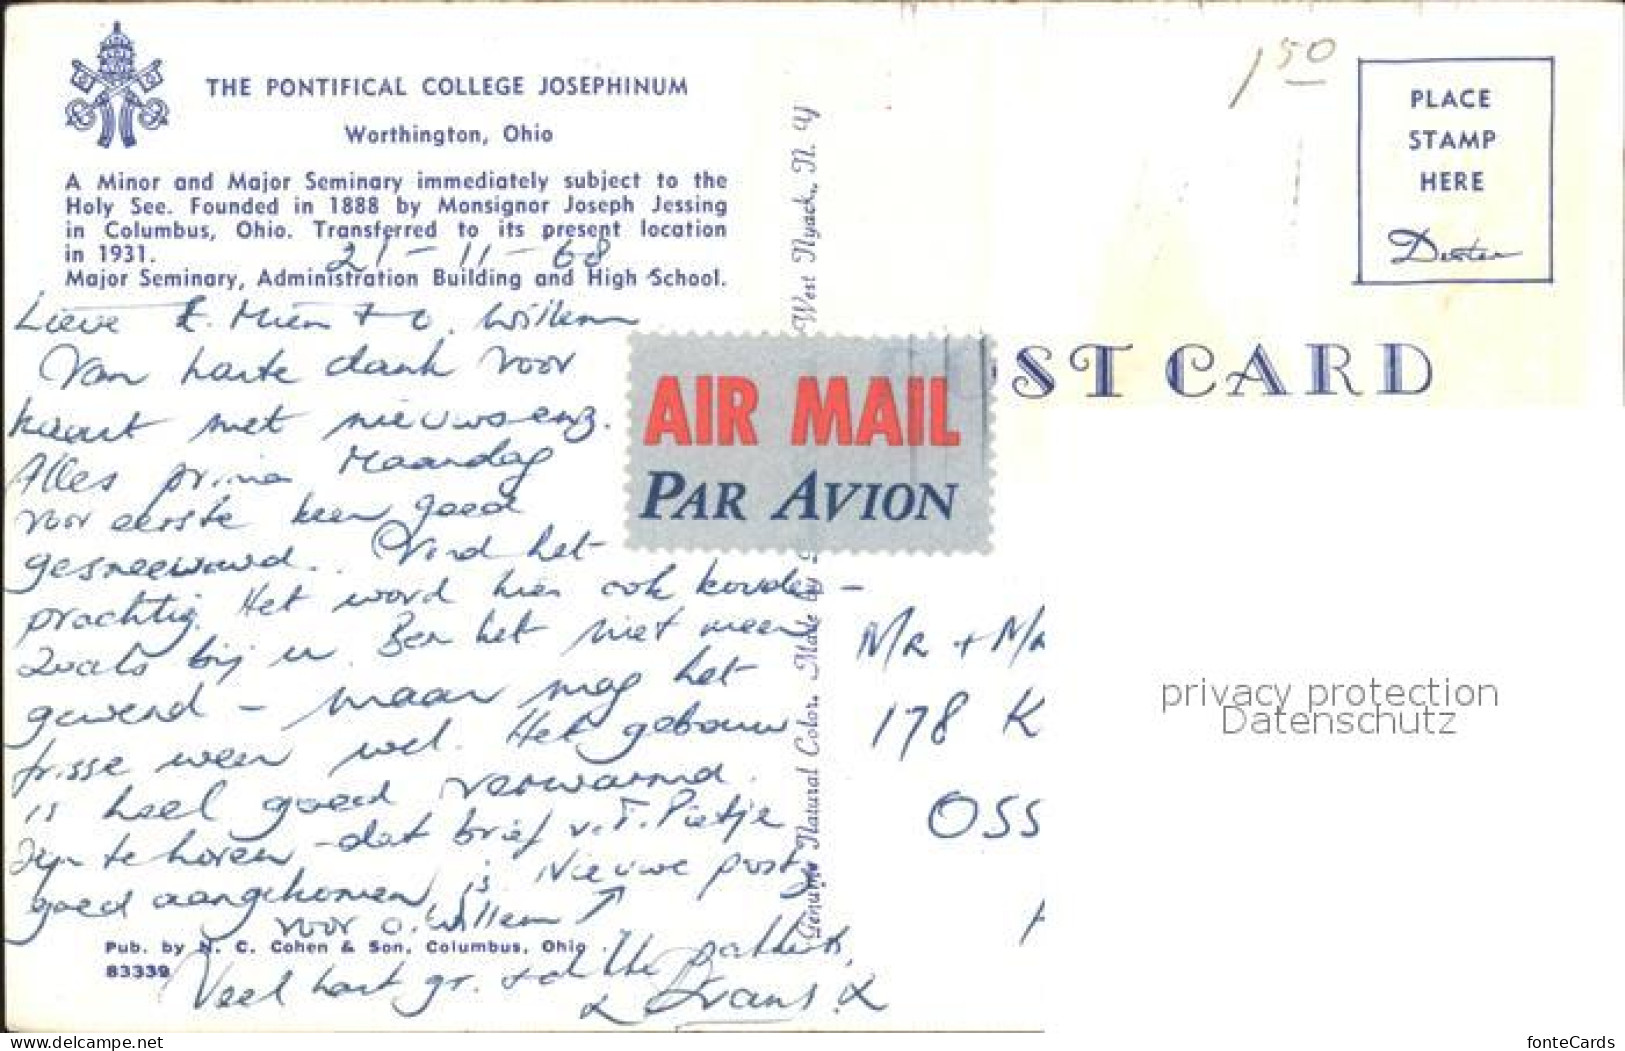 THE PONTIFICAL COLLEGE JOSEPHINUM
Worthington, Ohio
A Minor and Major Seminary immediately subject to the
Holy See. Founded in 1888 by Monsignor Joseph Jessing
in Columbus, Ohio. Transferred to its present location
in 1931.
21-11-68
Major Seminary, Administration Building and High School.
Lieve t. Mien + o. Willem
Van harte dank voor
kaart met nieuws enz.
Alles prima Maandag
voor eerste keer goed
gesneeuwd. Vind het
prachtig. Het word hier ook kouder -
zoals bij u. Ben het niet meer
gewend - maar mag het
frisse weer wel. Het gebouw
is heel goed verwarmd.
te horen - dat brief v. T. Pietje
goed aangekomen is. Nieuwe postz
voor o. Willem ↗
Pub. by N. C. Cohen & Son, Columbus, Ohio
83339
Veel hart gr.
Frans.
Genuine Natural Color. Made by West Nyack, N. Y
AIR MAIL
PAR AVION
150
PLACE
STAMP
HERE
Dexter
ST CARD
MR + MR
178 K
OSS
privacy protection
Datenschutz
www.delcampe.net
fonteCards